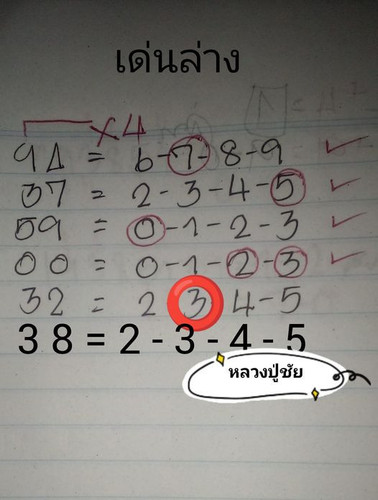 เด่นล่าง
×4
94 = 6-7-8-9 ✓
37 = 2-3-4-5 ✓
59 = 0-1-2-3 ✓
00 = 0-1-2-3 ✓
32 = 2 3 4-5
38 = 2 - 3 - 4 - 5
หลวงปู่ชัย